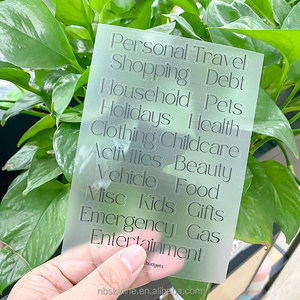 Personal Travel
Shopping Debt
Household Pets
Holidays Health
Clothing Childcare
Activities Beauty
Vehicle Food
Misc Kids Gifts
Emergency Gas
Entertainment
budgets